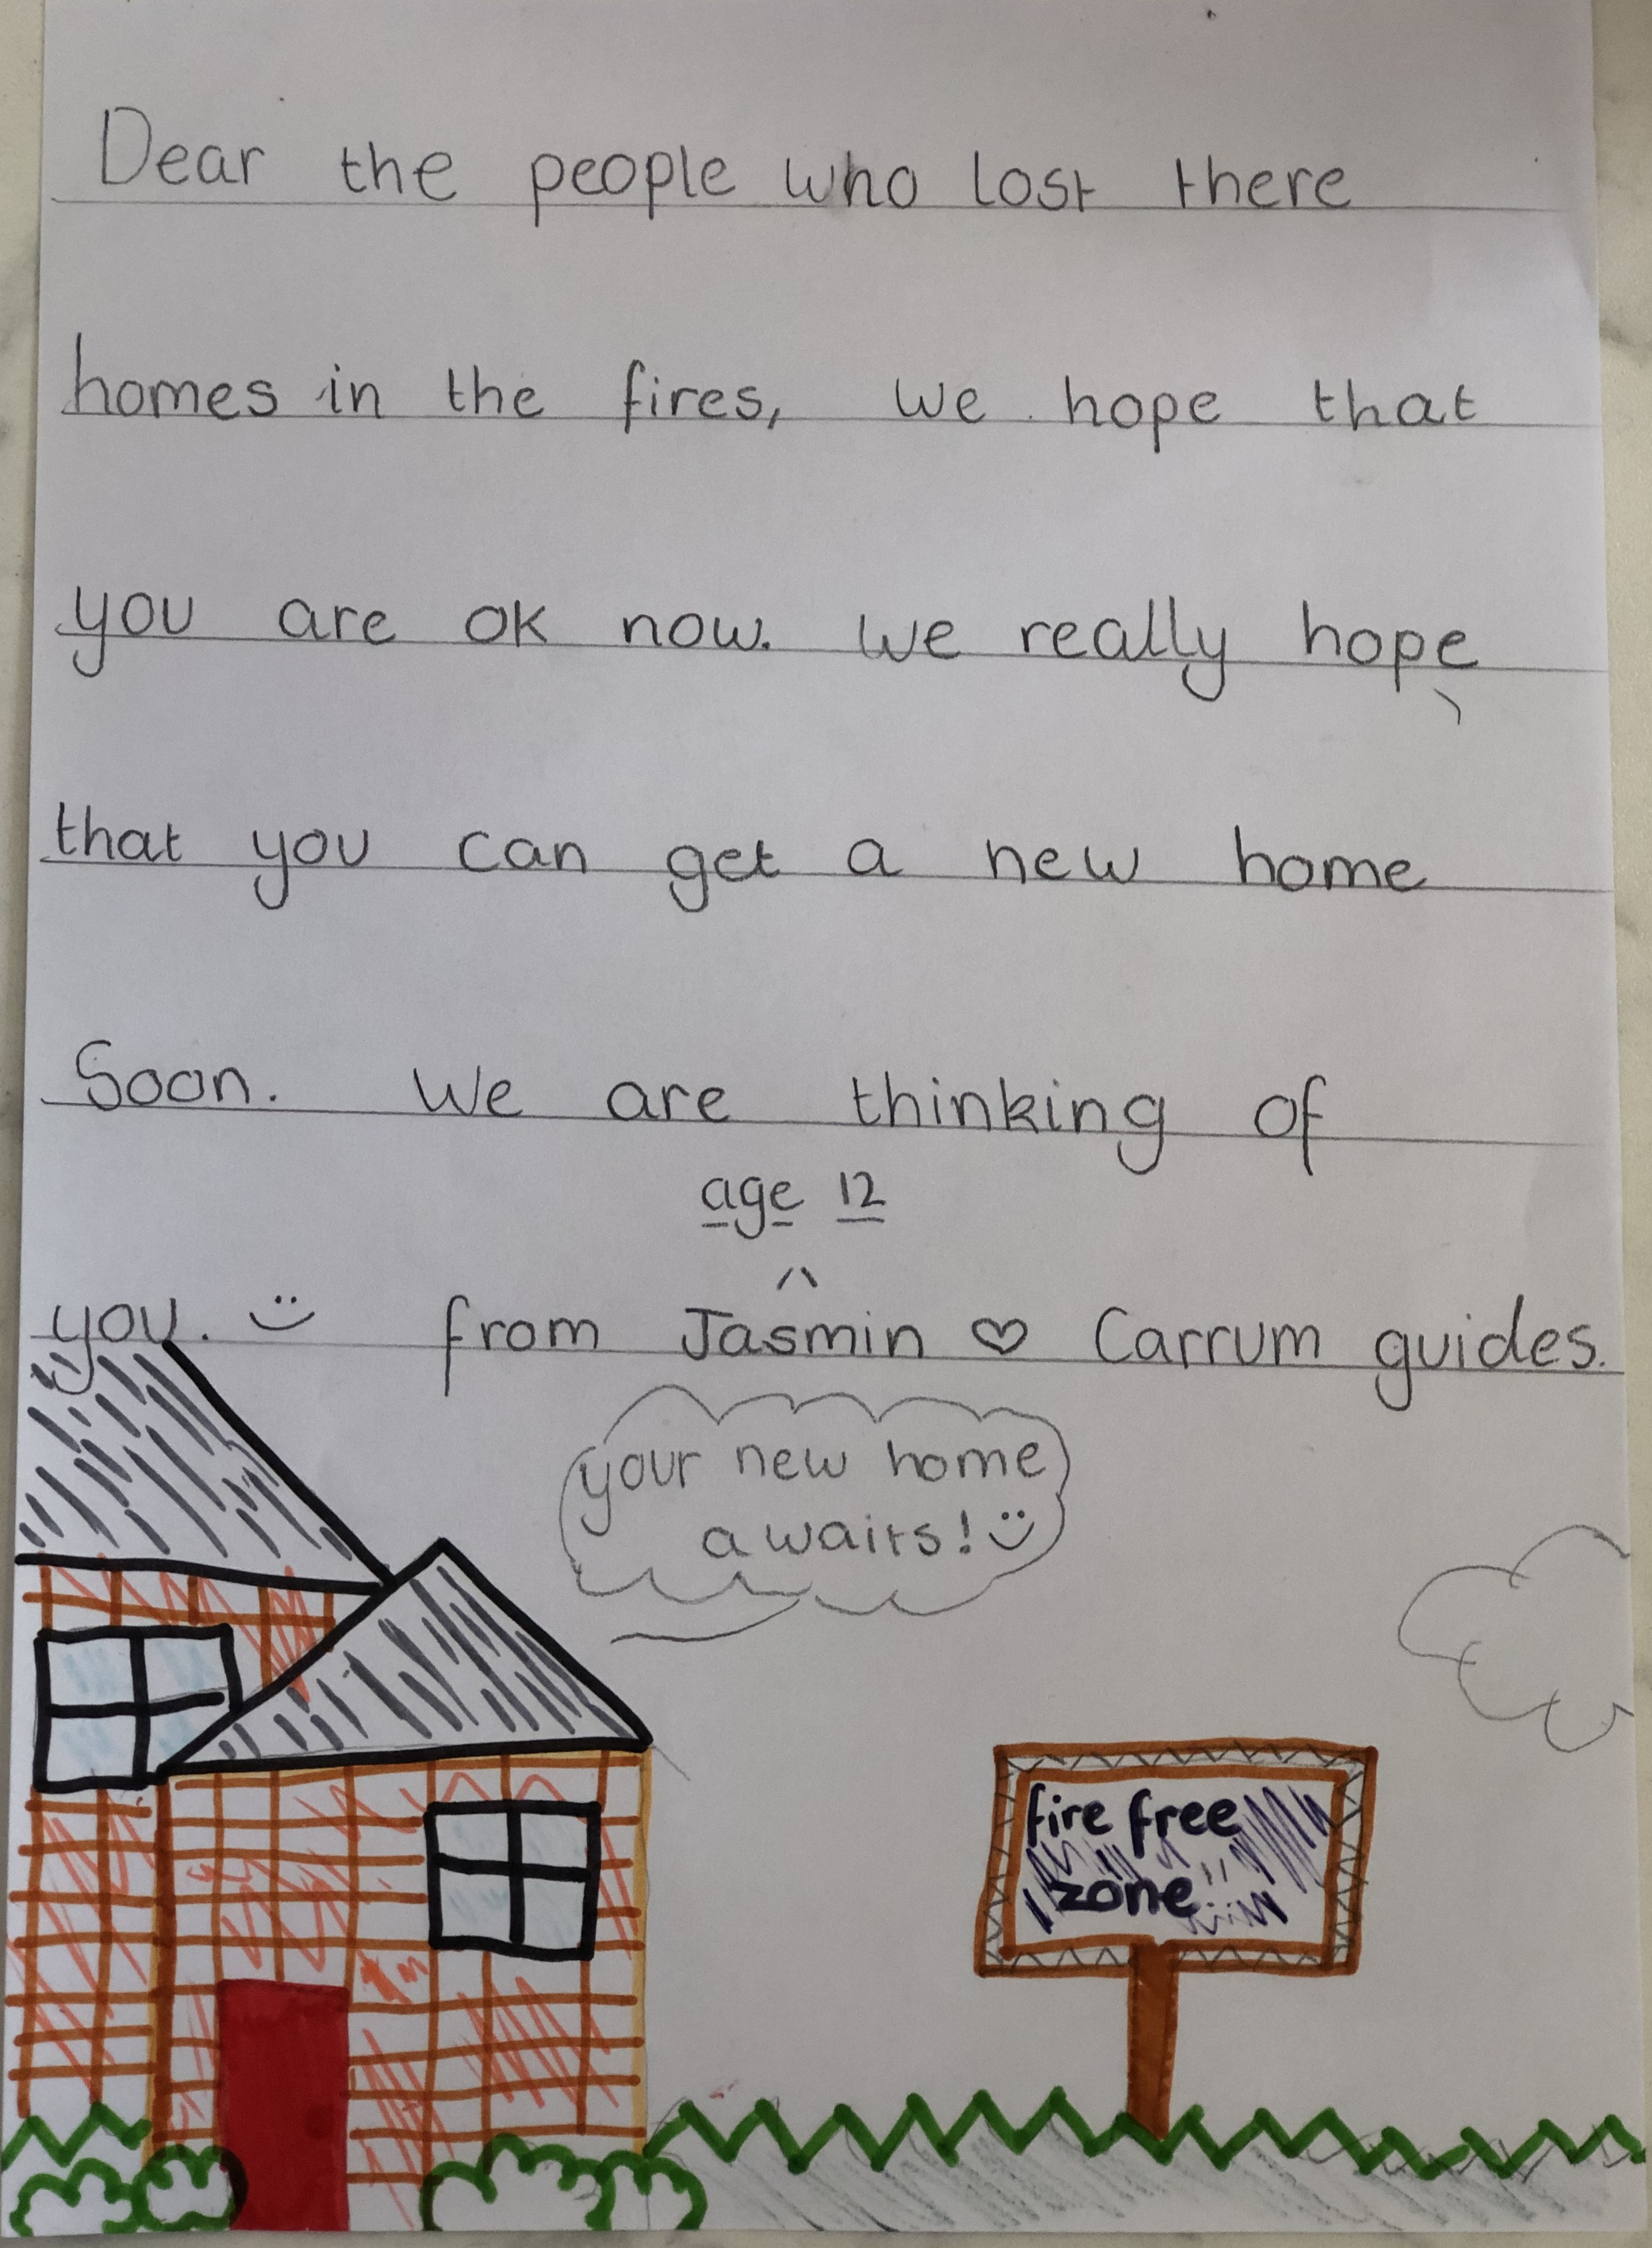 Dear the people who lost there
homes in the fires, we hope that
you are ok now. We really hope
that you can get a new home
Soon. We are thinking of
age 12
you. :) from Jasmin ♡ Carrum guides.
your new home
awaits! :)
fire free
zone!!